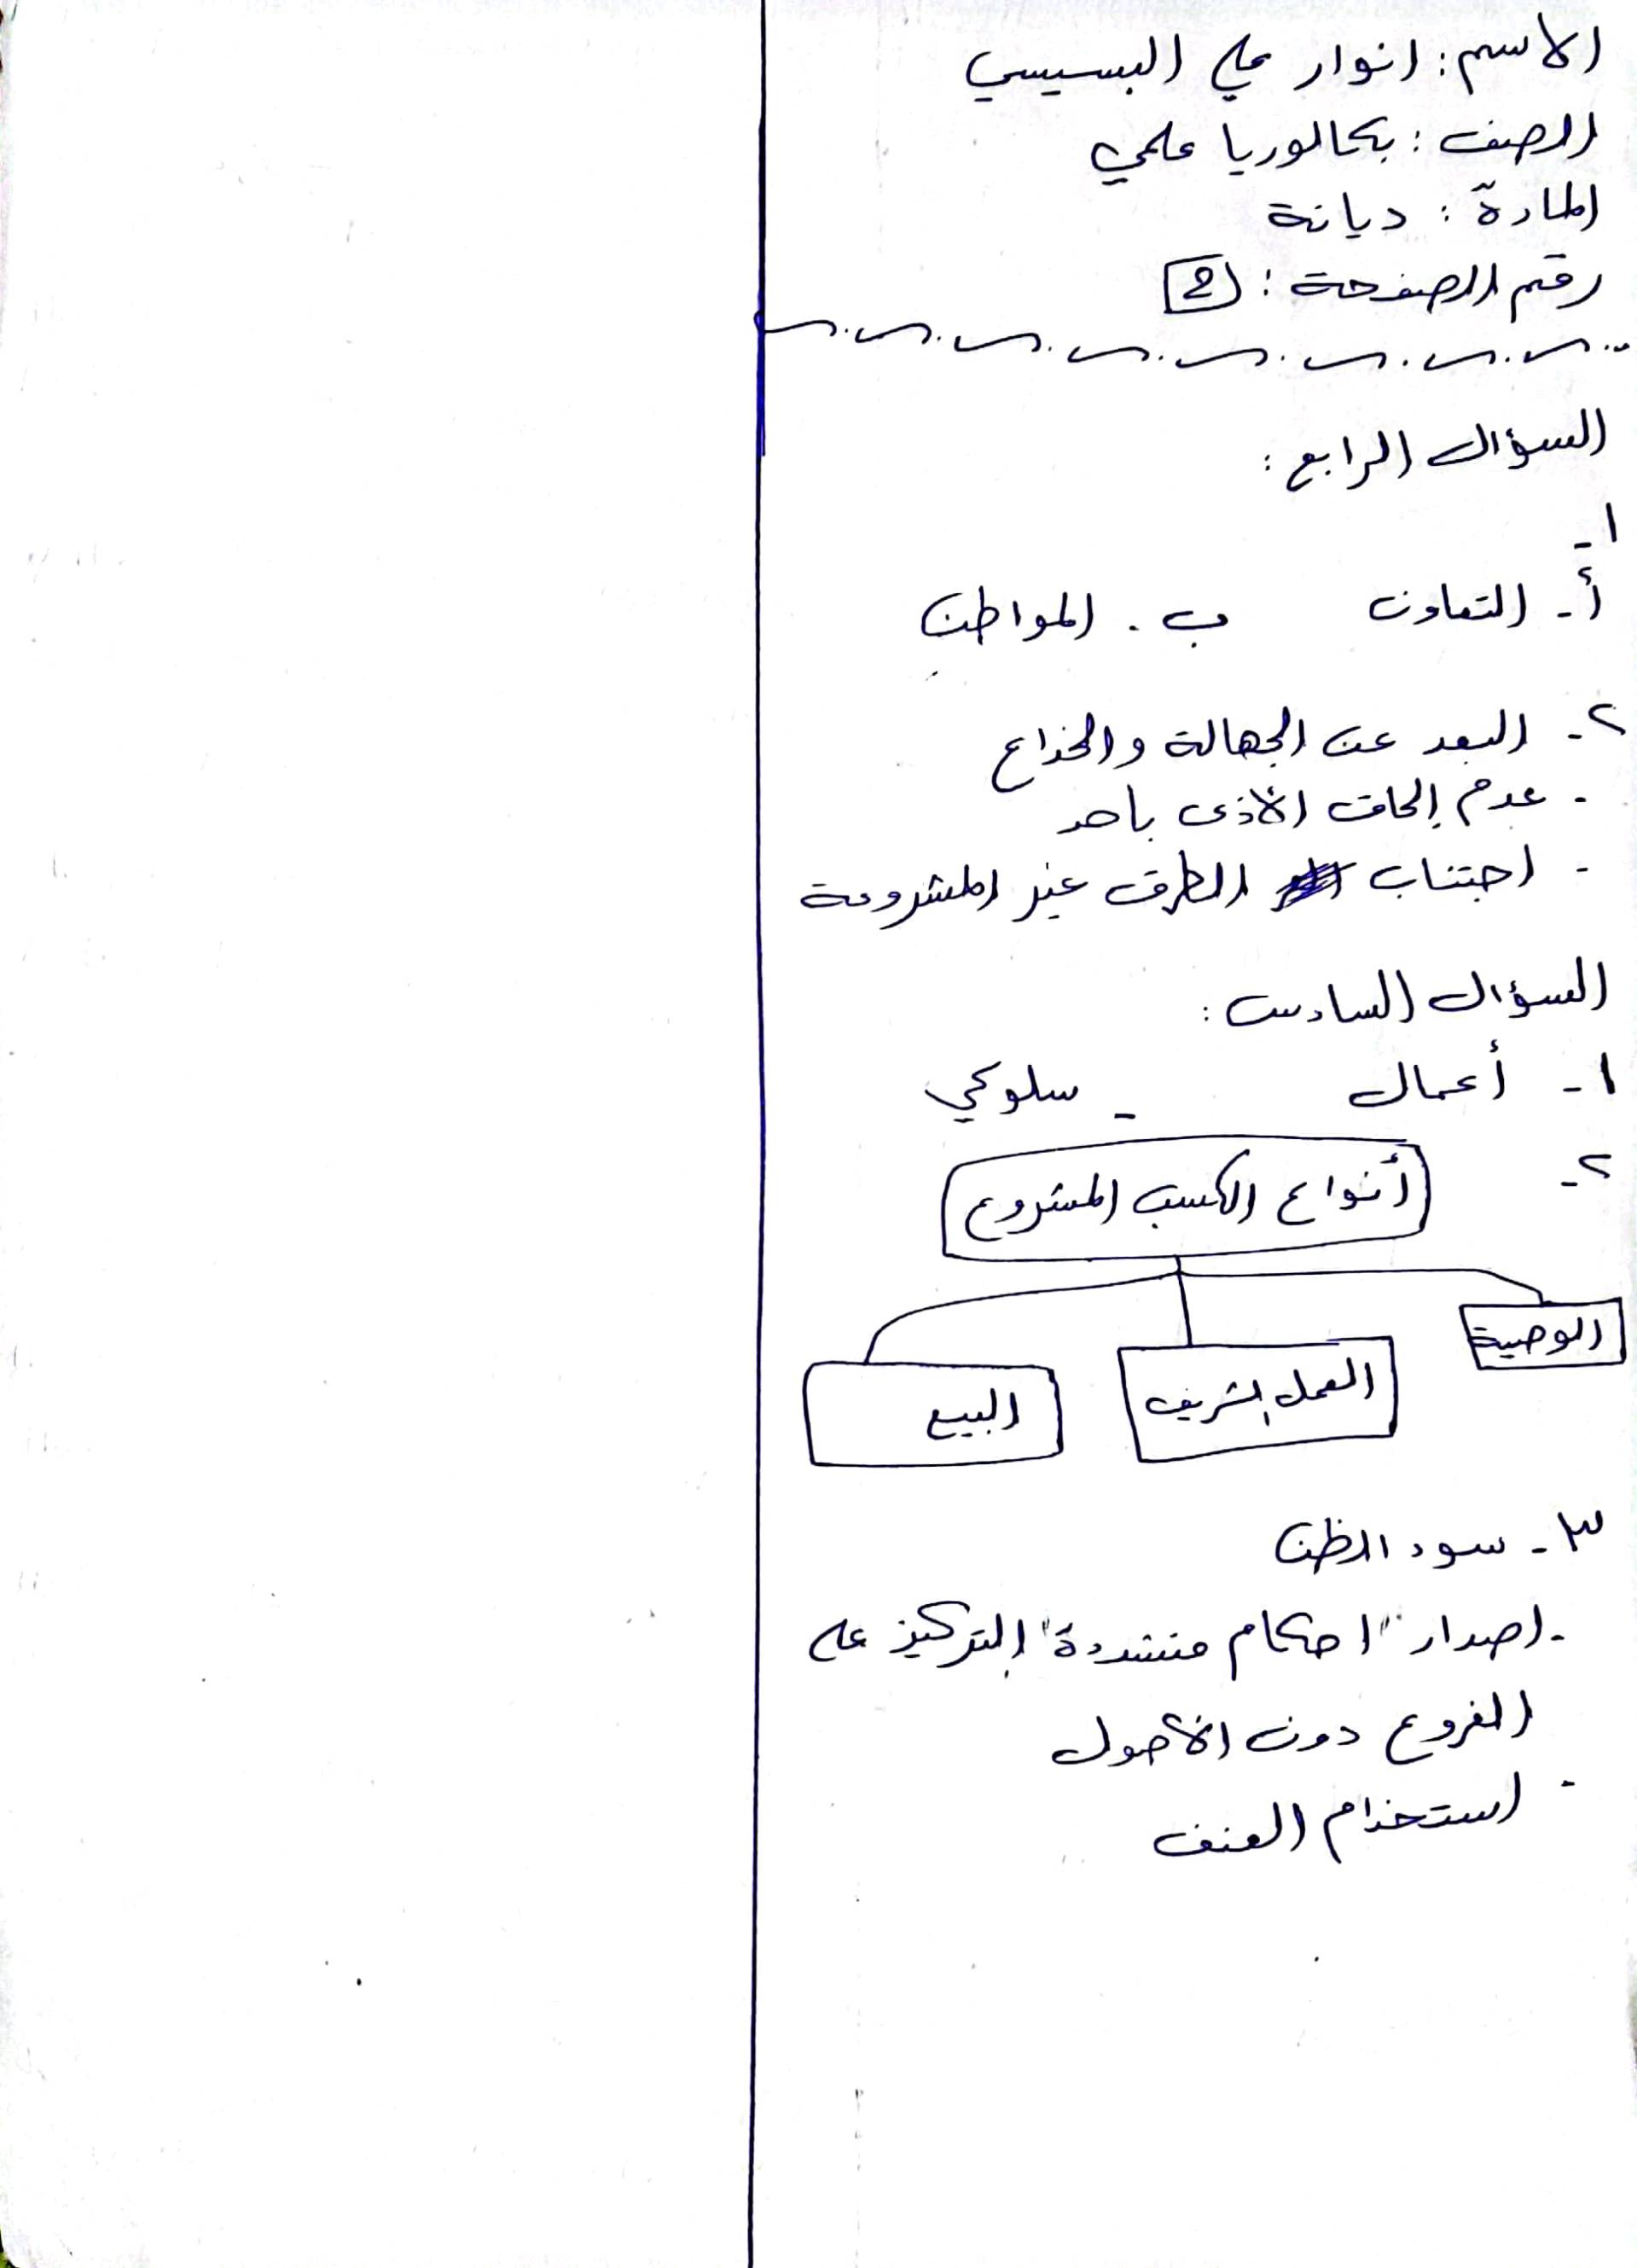 الاسم: انوار علي البسيسي
الصف: بكالوريا علمي
المادة: ديانة
رقم الصفحة: 2
السؤال الرابع:
١-
أ- التعاون ب. المواطن
٢- البعد عن الجهالة والخداع
- عدم إلحاق الأذى بأحد
- اجتناب الطرق غير المشروعة
السؤال السادس:
١- أعمال - سلوكي
٢- أنواع الكسب المشروع
الوصية
العمل الشريف
البيع
٣- سوء الظن
- اصدار "احكام متشددة" التركيز على
الفروع دون الأصول
- استخدام العنف